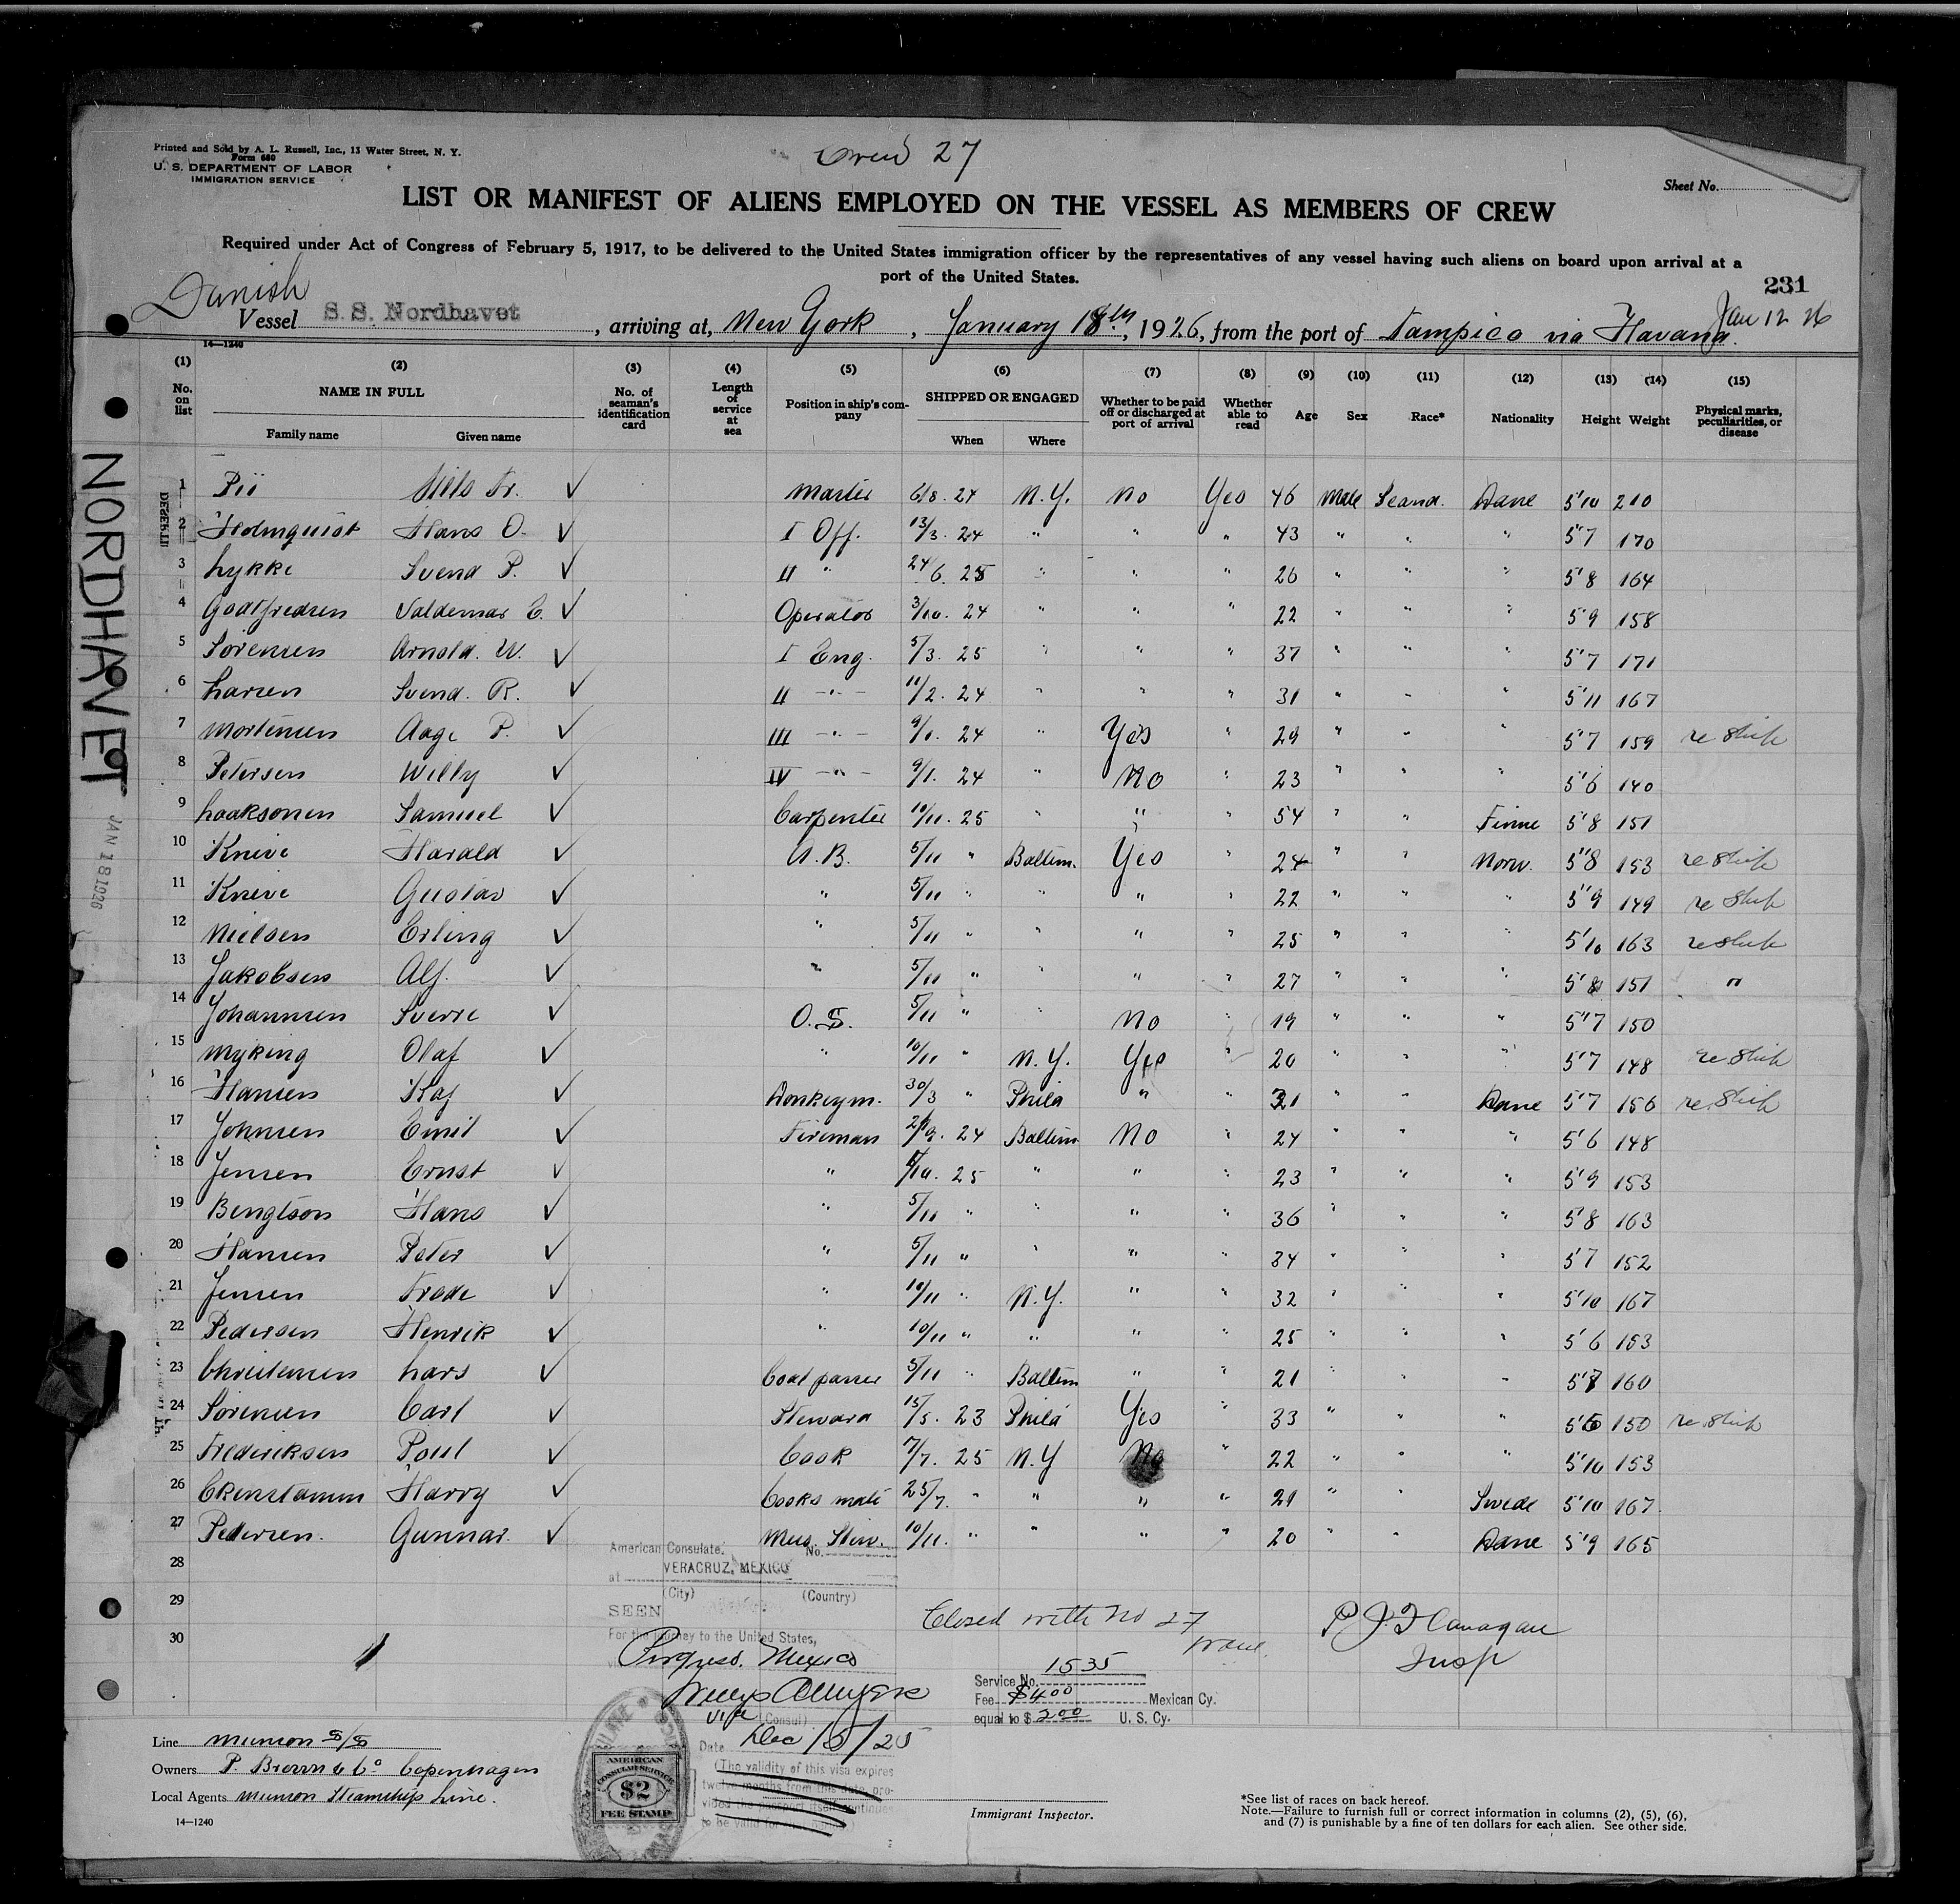 Printed and Sold by A. L. Russell, Inc., 13 Water Street, N. Y.
Form 680
U. S. DEPARTMENT OF LABOR
IMMIGRATION SERVICE
27
Sheet No.
LIST OR MANIFEST OF ALIENS EMPLOYED ON THE VESSEL AS MEMBERS OF CREW
Required under Act of Congress of February 5, 1917, to be delivered to the United States immigration officer by the representatives of any vessel having such aliens on board upon arrival at a
port of the United States.
231
Danish
Jan 12 26
Vessel S. S. Nordhavet, arriving at, New York, January 18th, 1926, from the port of Tampico via Havana.
14—1240
(1) (2) (3) (4) (5) (6) (7) (8) (9) (10) (11) (12) (13) (14) (15)
No. on list NAME IN FULL No. of seaman's identification card Length of service at sea Position in ship's company SHIPPED OR ENGAGED Whether to be paid off or discharged at port of arrival Whether able to read Age Sex Race* Nationality Height Weight Physical marks, peculiarities, or disease
Family name Given name When Where
1 Pii Niels Fr. ✓ Master 6/8. 24 N.Y. No Yes 46 Male Scand. Dane 5'10 210
2 Holmquist Hans O. ✓ I Off. 13/3. 24 " " " 43 " " " 5'7 170
3 Lykke Svend P. ✓ II " 24/6. 25 " " " 26 " " " 5'8 164
4 Godtfredsen Valdemar E. ✓ Operator 3/10. 24 " " " 22 " " " 5'9 158
5 Sorensen Arnold. W. ✓ I Eng. 5/3. 25 " " " 37 " " " 5'7 171
6 Larsen Svend. R. ✓ II -"- 11/2. 24 " " " 31 " " " 5'11 167
7 Mortensen Aage P. ✓ III -"- 9/1. 24 " Yes " 29 " " " 5'7 159 re ship
8 Petersen Willy ✓ IV -"- 9/1. 24 " No " 23 " " " 5'6 140
9 Laaksonen Samuel ✓ Carpenter 10/11. 25 " " " 54 " " Finne 5'8 151
10 Knive Harald ✓ A.B. 5/11 " Baltim. Yes " 24 " " Norw. 5'8 153 re ship
11 Knive Gustav ✓ " 5/11 " " " " 22 " " " 5'9 149 re ship
12 Nielsen Erling ✓ " 5/11 " " " " 25 " " " 5'10 163 re ship
13 Jakobsen Alf. ✓ " 5/11 " " " " 27 " " " 5'8 151 "
14 Johannsen Sverre ✓ O.S. 5/11 " " No " 19 " " " 5'7 150
15 Myking Olaf ✓ " 10/11 " N.Y. Yes " 20 " " " 5'7 148 re ship
16 Hansen Kaj ✓ Donkeym. 30/3 " Phila " " 31 " " Dane 5'7 156 re ship
17 Johnsen Emil ✓ Fireman 21/9. 24 Baltim No " 24 " " " 5'6 148
18 Jensen Ernst ✓ " /10. 25 " " " 23 " " " 5'9 153
19 Bengtson Hans ✓ " 5/11 " " " " 36 " " " 5'8 163
20 Hansen Peter ✓ " 5/11 " " " " 34 " " " 5'7 152
21 Jensen Frode ✓ " 10/11 " N.Y. " " 32 " " " 5'10 167
22 Pedersen Henrik ✓ " 10/11 " " " " 25 " " " 5'6 153
23 Christensen Lars ✓ Coal passer 5/11 " Baltim " " 21 " " " 5'7 160
24 Sorensen Carl ✓ Steward 15/5. 23 Phila Yes " 33 " " " 5'6 150 re ship
25 Frederiksen Poul ✓ Cook 7/7. 25 N.Y No " 22 " " " 5'10 153
26 Ekenstamm Harry ✓ Cooks mate 25/7. " " " " 21 " " Swede 5'10 167.
27 Pedersen. Gunnar. ✓ Mess. Stew. 10/11. " " " " 20 " " Dane 5'9 165
28
29
30
NORDHAVET
JAN 18 1926
American Consulate. No.
at VERACRUZ, MEXICO
(City) (Country)
SEEN
For the journey to the United States,
Progreso. Mexico
Vice (Consul)
Date Dec 15/25
(The validity of this visa expires
twelve months from this date, pro-
vided the passport itself continues
to be valid for
AMERICAN
CONSULAR SERVICE
$2
FEE STAMP
Closed with no 27
P J Flanagan
Insp
Service No. 1535
Fee $4.00 Mexican Cy.
equal to $ 2.00 U. S. Cy.
Line Munson S/S
Owners P. Brown & Co Copenhagen
Local Agents Munson Steamship Line.
14—1240
Immigrant Inspector.
*See list of races on back hereof.
Note.—Failure to furnish full or correct information in columns (2), (5), (6),
and (7) is punishable by a fine of ten dollars for each alien. See other side.